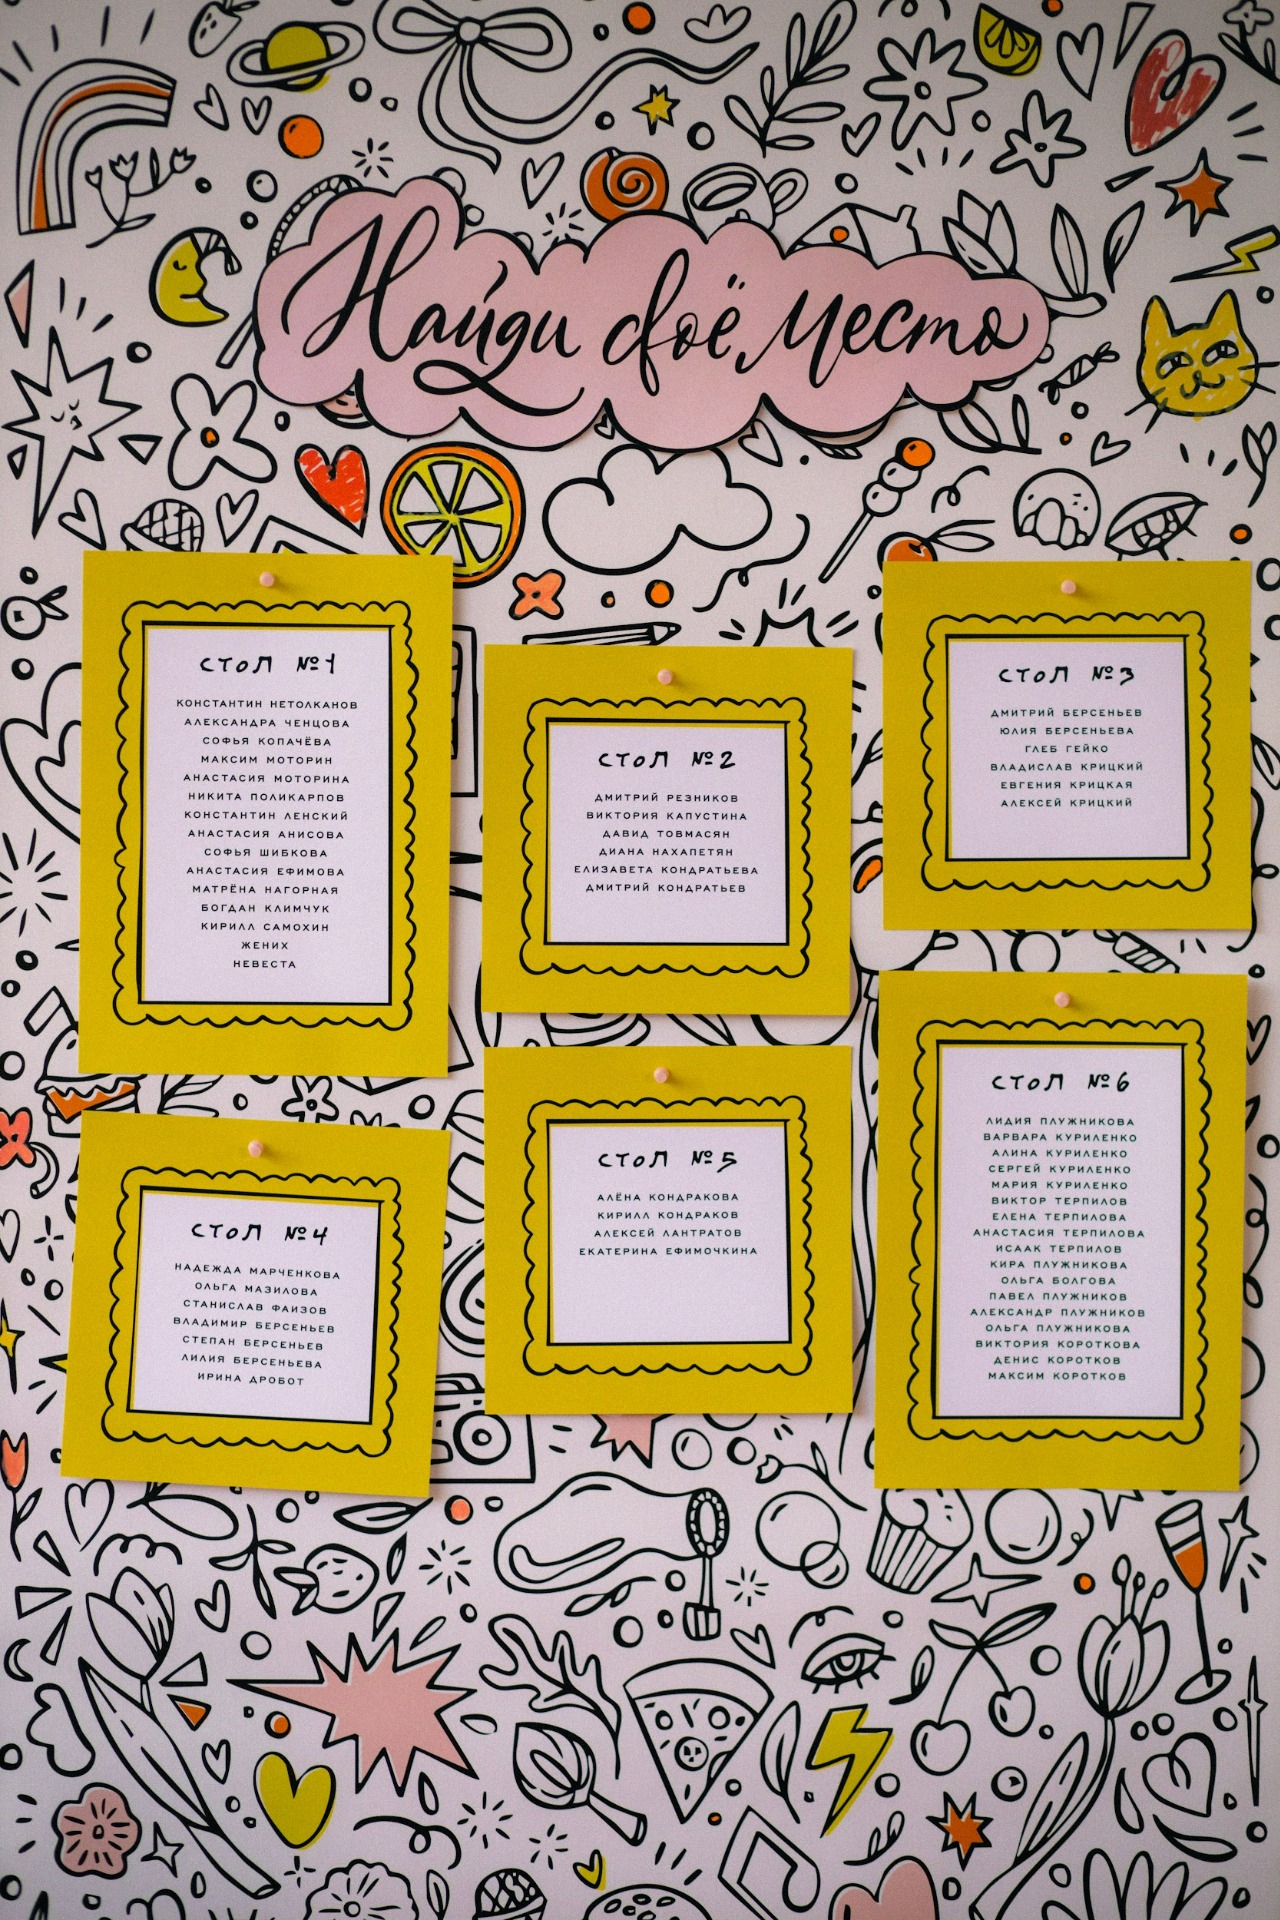 Найди своё место
СТОЛ №1
КОНСТАНТИН НЕТОЛКАНОВ
АЛЕКСАНДРА ЧЕНЦОВА
СОФЬЯ КОПАЧЁВА
МАКСИМ МОТОРИН
АНАСТАСИЯ МОТОРИНА
НИКИТА ПОЛИКАРПОВ
КОНСТАНТИН ЛЕНСКИЙ
АНАСТАСИЯ АНИСОВА
СОФЬЯ ШИБКОВА
АНАСТАСИЯ ЕФИМОВА
МАТРЁНА НАГОРНАЯ
БОГДАН КЛИМЧУК
КИРИЛЛ САМОХИН
ЖЕНИХ
НЕВЕСТА
СТОЛ №2
ДМИТРИЙ РЕЗНИКОВ
ВИКТОРИЯ КАПУСТИНА
ДАВИД ТОВМАСЯН
ДИАНА НАХАПЕТЯН
ЕЛИЗАВЕТА КОНДРАТЬЕВА
ДМИТРИЙ КОНДРАТЬЕВ
СТОЛ №3
ДМИТРИЙ БЕРСЕНЬЕВ
ЮЛИЯ БЕРСЕНЬЕВА
ГЛЕБ ГЕЙКО
ВЛАДИСЛАВ КРИЦКИЙ
ЕВГЕНИЯ КРИЦКАЯ
АЛЕКСЕЙ КРИЦКИЙ
СТОЛ №4
НАДЕЖДА МАРЧЕНКОВА
ОЛЬГА МАЗИЛОВА
СТАНИСЛАВ ФАИЗОВ
ВЛАДИМИР БЕРСЕНЬЕВ
СТЕПАН БЕРСЕНЬЕВ
ЛИЛИЯ БЕРСЕНЬЕВА
ИРИНА ДРОБОТ
СТОЛ №5
АЛЁНА КОНДРАКОВА
КИРИЛЛ КОНДРАКОВ
АЛЕКСЕЙ ЛАНТРАТОВ
ЕКАТЕРИНА ЕФИМОЧКИНА
СТОЛ №6
ЛИДИЯ ПЛУЖНИКОВА
ВАРВАРА КУРИЛЕНКО
АЛИНА КУРИЛЕНКО
СЕРГЕЙ КУРИЛЕНКО
МАРИЯ КУРИЛЕНКО
ВИКТОР ТЕРПИЛОВ
ЕЛЕНА ТЕРПИЛОВА
АНАСТАСИЯ ТЕРПИЛОВА
ИСААК ТЕРПИЛОВ
КИРА ПЛУЖНИКОВА
ОЛЬГА БОЛГОВА
ПАВЕЛ ПЛУЖНИКОВ
АЛЕКСАНДР ПЛУЖНИКОВ
ОЛЬГА ПЛУЖНИКОВА
ВИКТОРИЯ КОРОТКОВА
ДЕНИС КОРОТКОВ
МАКСИМ КОРОТКОВ